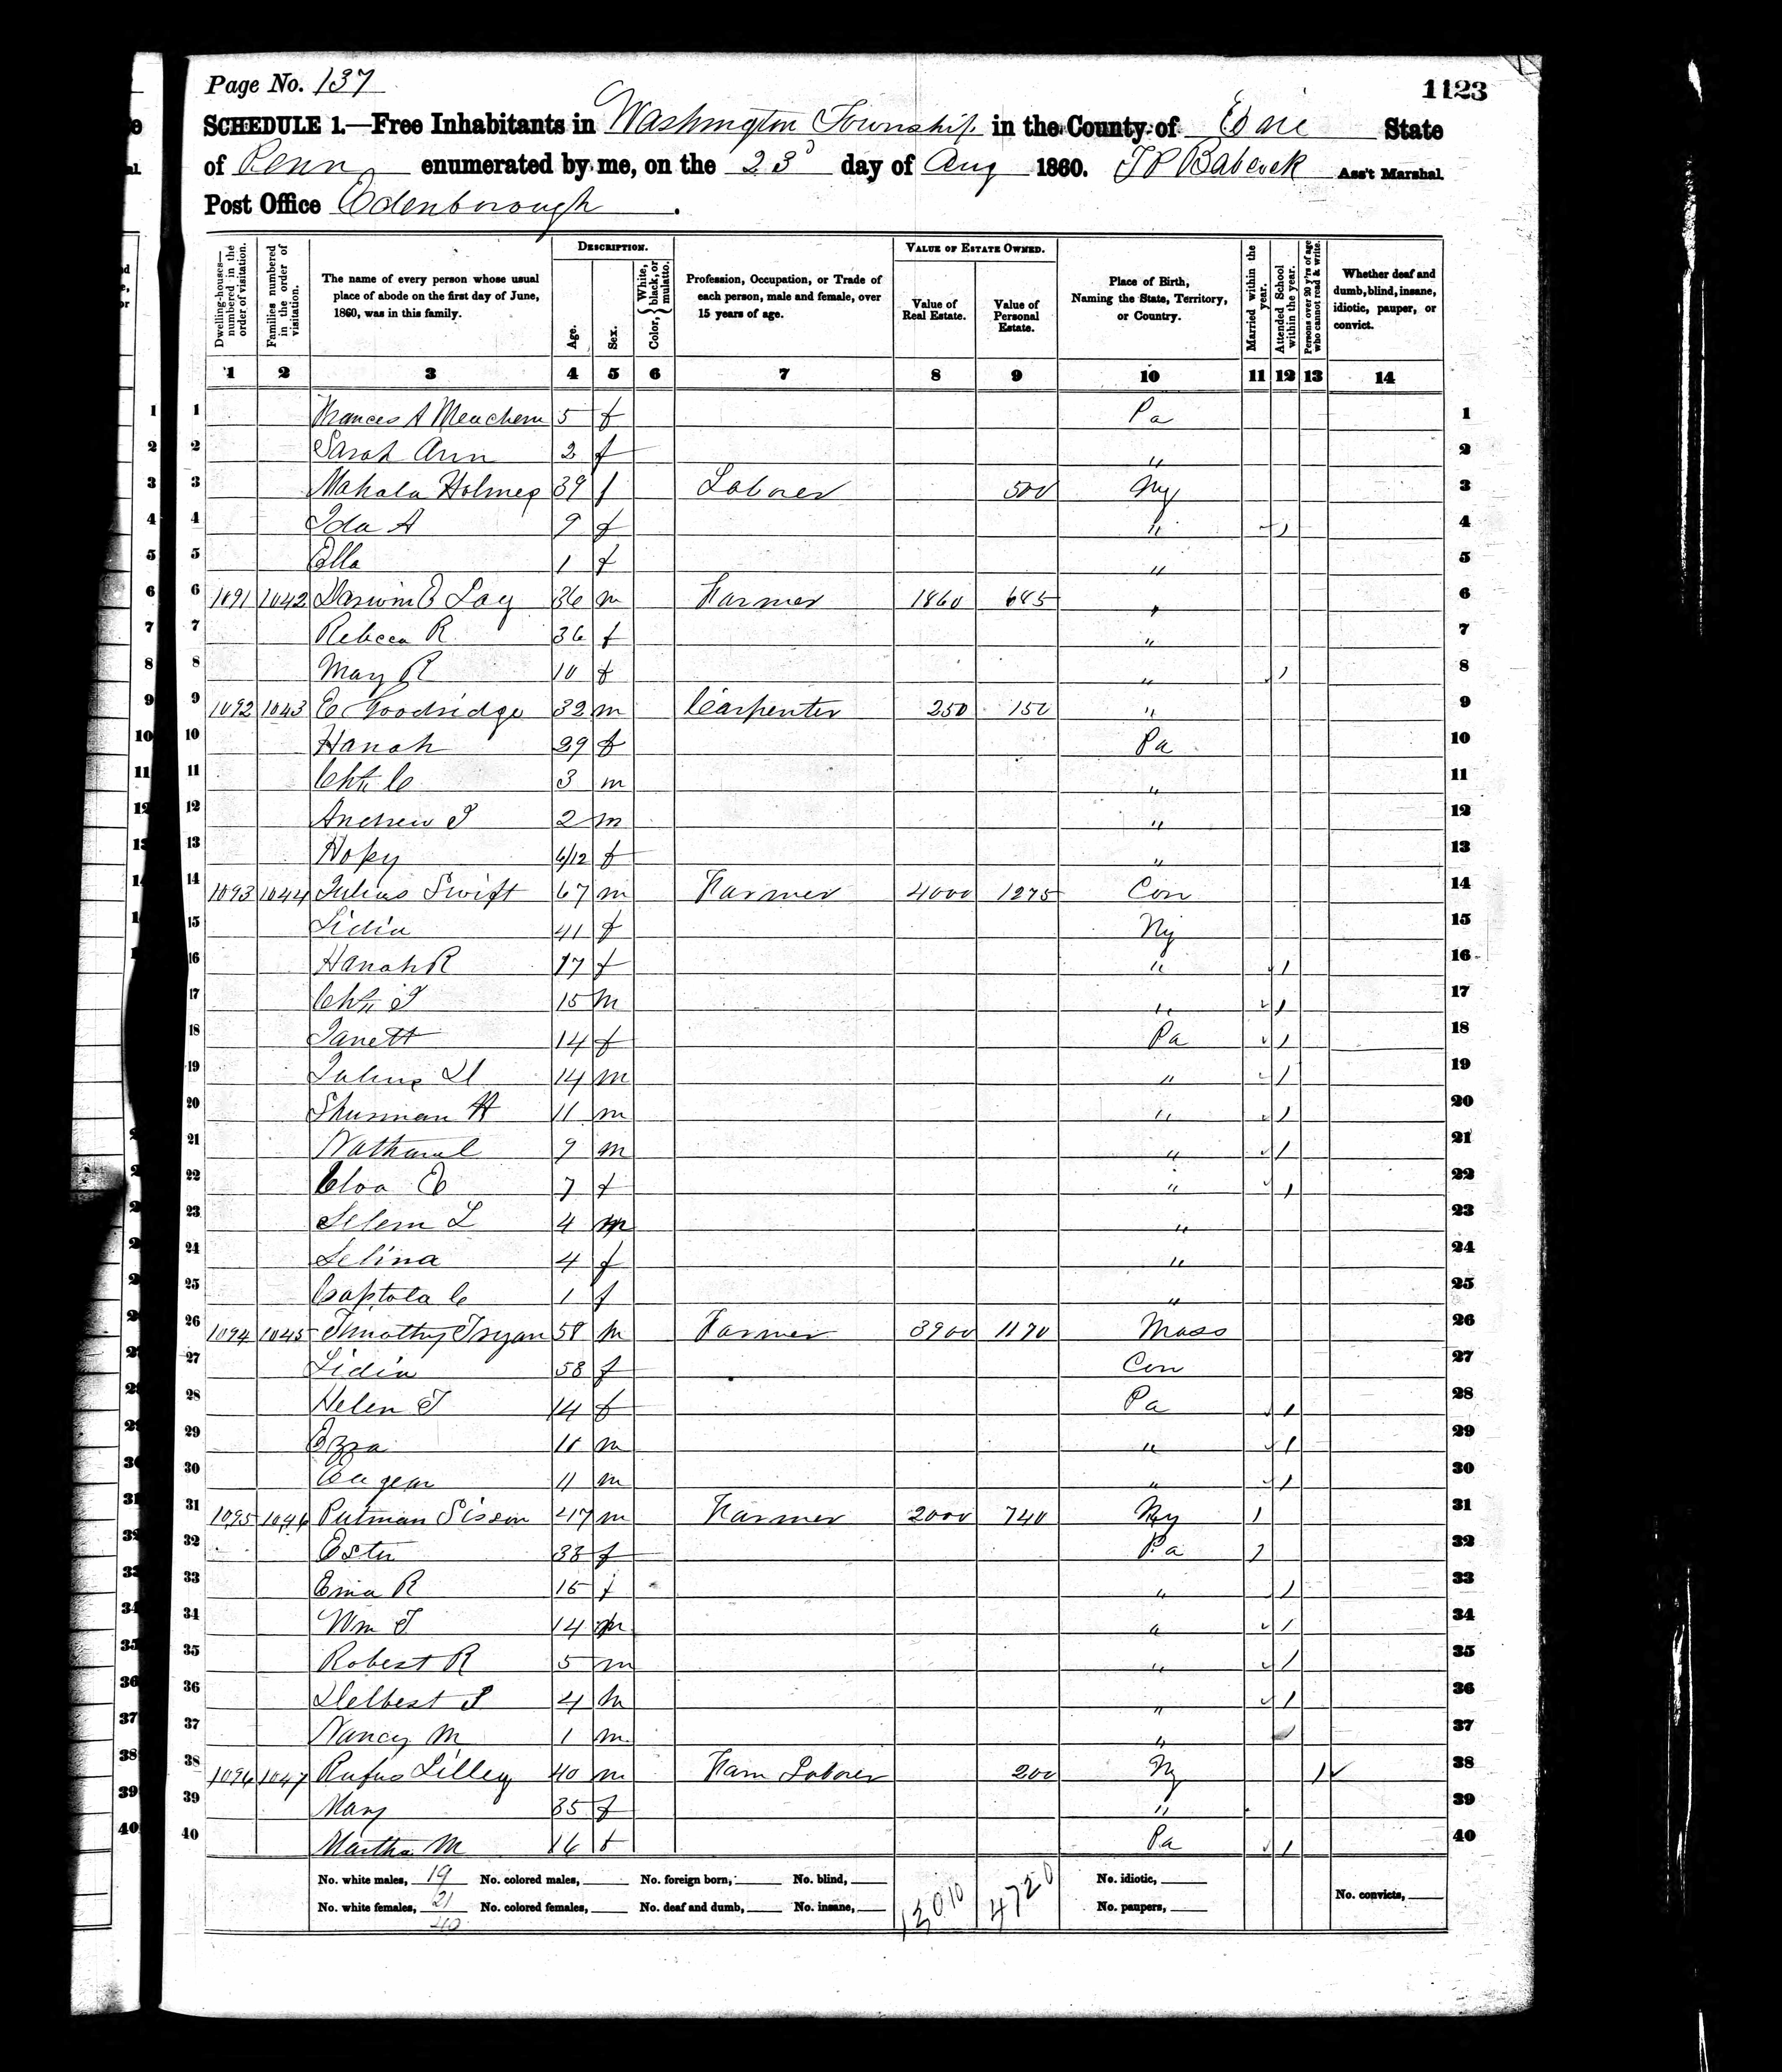 Page No. 137
1123
SCHEDULE 1.—Free Inhabitants in Washington Township in the County of Erie State
of Penn enumerated by me, on the 23d day of Aug 1860. J P Babcock Ass't Marshal.
Post Office Edenborough.
Dwelling-houses—numbered in the order of visitation.
Families numbered in the order of visitation.
The name of every person whose usual place of abode on the first day of June, 1860, was in this family.
DESCRIPTION.
Age.
Sex.
Color, { White, black, or mulatto.
Profession, Occupation, or Trade of each person, male and female, over 15 years of age.
VALUE OF ESTATE OWNED.
Value of Real Estate.
Value of Personal Estate.
Place of Birth, Naming the State, Territory, or Country.
Married within the year.
Attended School within the year.
Persons over 20 y'rs of age who cannot read & write.
Whether deaf and dumb, blind, insane, idiotic, pauper, or convict.
1 2 3 4 5 6 7 8 9 10 11 12 13 14
1 Frances A Meachem 5 f Pa 1
2 Sarah Ann 2 f " 2
3 Mahala Holmes 39 f Laborer 500 Ny 3
4 Ida A 9 f " 1 4
5 Ella 1 f " 5
6 1091 1042 Darwin E Lay 36 m Farmer 1860 685 " 6
7 Rebeca R 36 f " 7
8 May R 10 f " 1 8
9 1092 1043 E Goodridge 32 m Carpenter 250 150 " 9
10 Hanah 29 f Pa 10
11 C 3 m " 11
12 Andrew J 2 m " 12
13 Hopy 6/12 f " 13
14 1093 1044 Julius Swift 67 m Farmer 4000 1275 Con 14
15 Lidia 41 f Ny 15
16 Hanah R 17 f " 1 16
17 15 m " 1 17
18 Janett 14 f Pa 1 18
19 Julius 14 m " 1 19
20 Shurman H 11 m " 1 20
21 Nathanel 9 m " 1 21
22 Cloa E 7 f " 1 22
23 Selem L 4 m " 23
24 Selina 4 f " 24
25 Captola C 1 f " 25
26 1094 1045 Timothy Tryan 58 m Farmer 3900 1170 Mass 26
27 Lidia 58 f Con 27
28 Helen J 14 f Pa 1 28
29 Ezra 11 m " 1 29
30 Eugean 11 m " 1 30
31 1095 1046 Putman Sisson 47 m Farmer 2000 740 Ny 1 31
32 Ester 33 f Pa 1 32
33 Ema R 15 f " 1 33
34 Wm J 14 m " 1 34
35 Robert R 5 m " 1 35
36 Delbert 4 m " 1 36
37 Nancy M 1 m " 37
38 1096 1047 Rufus Lilley 40 m Farm Laborer 200 Ny 1 38
39 Mary 35 f " 39
40 Martha M 16 f Pa 1 40
No. white males, 19 No. colored males, No. foreign born, No. blind, 12010 4720 No. idiotic,
No. white females, 21 No. colored females, No. deaf and dumb, No. insane, No. paupers, No. convicts,
40